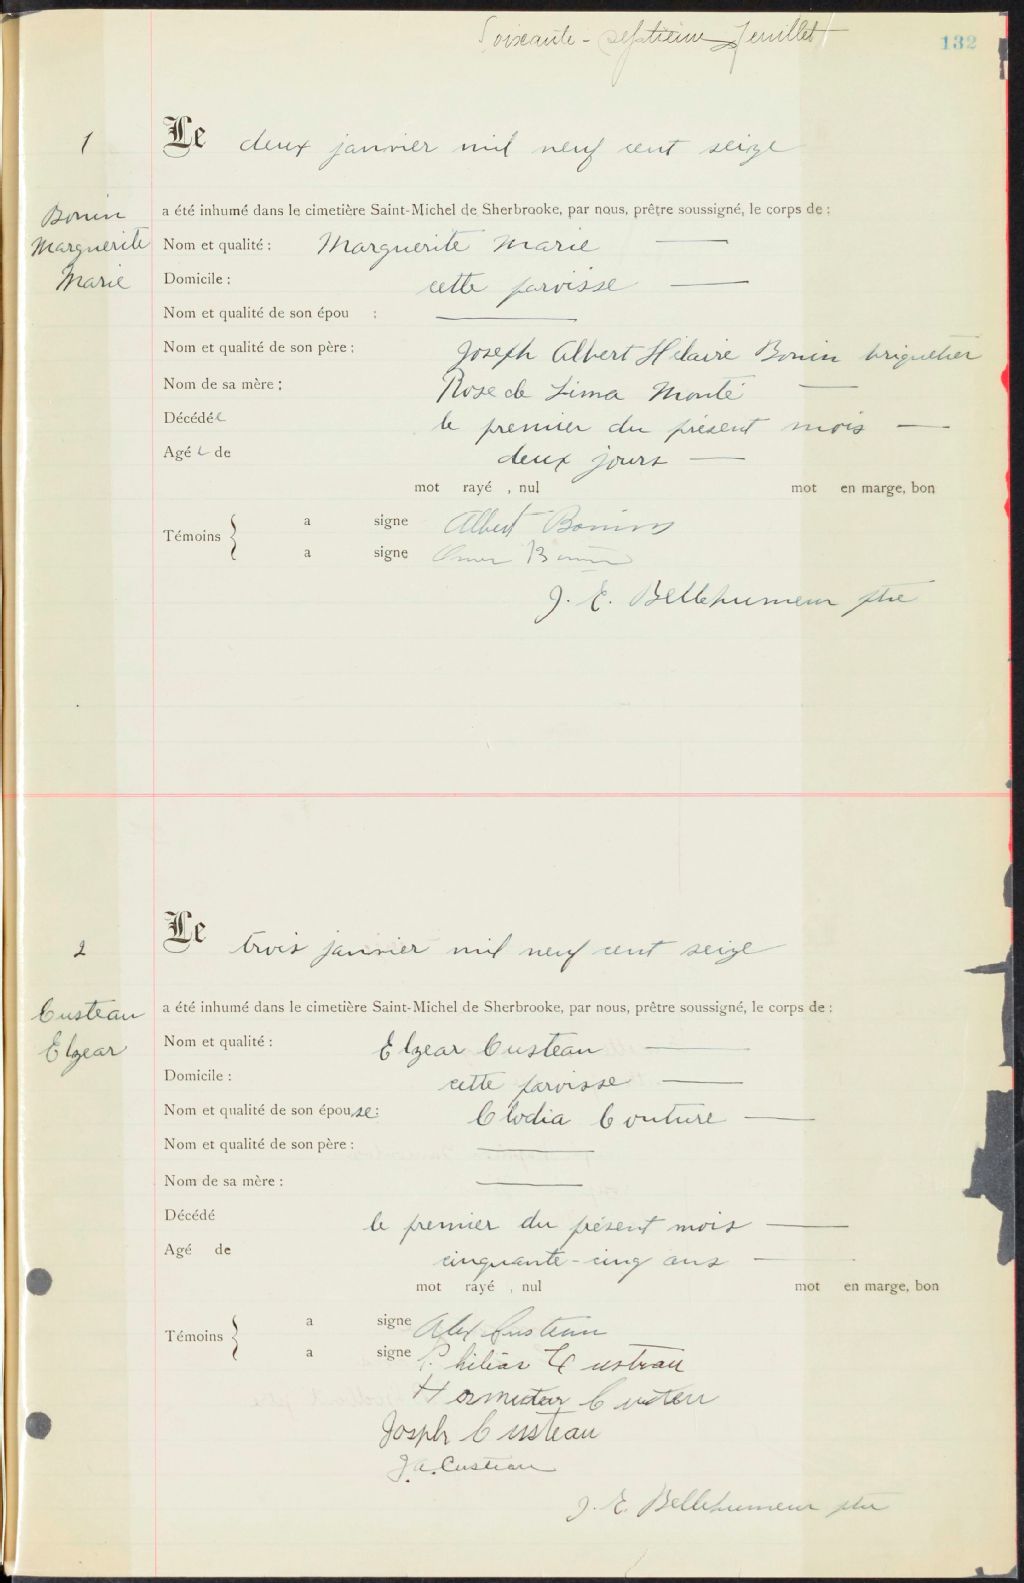 Soixante-septième feuillet
132
1
Le deux janvier mil neuf cent seize
Bonin
Marguerite
Marie
a été inhumé dans le cimetière Saint-Michel de Sherbrooke, par nous, prêtre soussigné, le corps de :
Nom et qualité : Marguerite Marie —
Domicile : cette paroisse —
Nom et qualité de son épou : —
Nom et qualité de son père : Joseph Albert Hilaire Bonin briquetier
Nom de sa mère : Rose de Lima Monté —
Décédée le premier du présent mois —
Agée de deux jours —
mot rayé , nul mot en marge, bon
Témoins { a signe Albert Bonin
a signe Omer Bonin
J. E. Bellehumeur ptre
2
Le trois janvier mil neuf cent seize
Custeau
Elzear
a été inhumé dans le cimetière Saint-Michel de Sherbrooke, par nous, prêtre soussigné, le corps de :
Nom et qualité : Elzear Custeau —
Domicile : cette paroisse —
Nom et qualité de son épouse : Clodia Couture —
Nom et qualité de son père : —
Nom de sa mère : —
Décédé le premier du présent mois —
Agé de cinquante-cinq ans —
mot rayé , nul mot en marge, bon
Témoins { a signe Alex Custeau
a signe Philias Custeau
Custeau
Josph Custeau
J.A. Custeau
J. E. Bellehumeur ptre